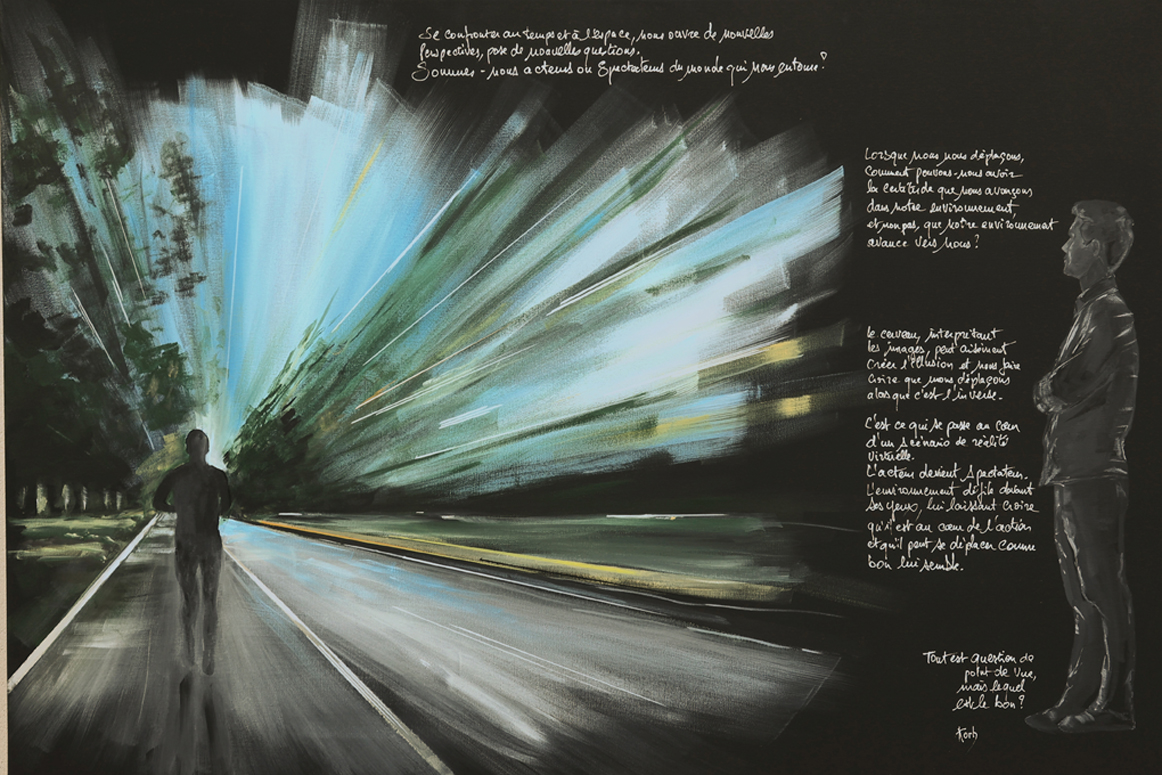 Se confronter au temps et à l'espace, nous ouvre de nouvelles
perspectives, pose de nouvelles questions.
Sommes-nous acteurs ou Spectateurs du monde qui nous entoure ?
Lorsque nous nous déplaçons,
Comment pouvons-nous avoir
la certitude que nous avançons
dans notre environnement,
et non pas, que notre environnement
avance vers nous ?
le cerveau, interprétant
les images, peut aisément
créer l'illusion et nous faire
croire que nous déplaçons
alors que c'est l'inverse.
C'est ce qui se passe au cœur
d'un scénario de réalité
virtuelle.
L'acteur devient Spectateur.
L'environnement défile devant
ses yeux, lui laissant croire
qu'il est au cœur de l'action
et qu'il peut se déplacer comme
bon lui semble.
Tout est question de
point de vue,
mais lequel
est le bon ?